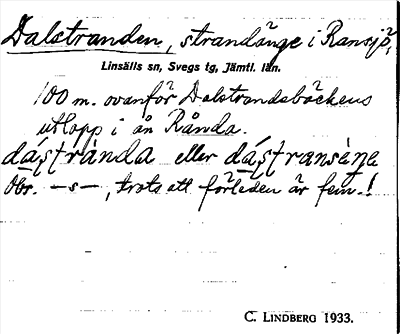 Dalstranden, strandänge i Ransjö,
Linsälls sn, Svegs tg, Jämtl. län.
100 m. ovanför Dalstrandsbäckens
utlopp i ån Rånda.
dáſtrànda eller dáſtransèŋa
Obs. –s–, trots att förleden är fem.!
C. LINDBERG 1933.